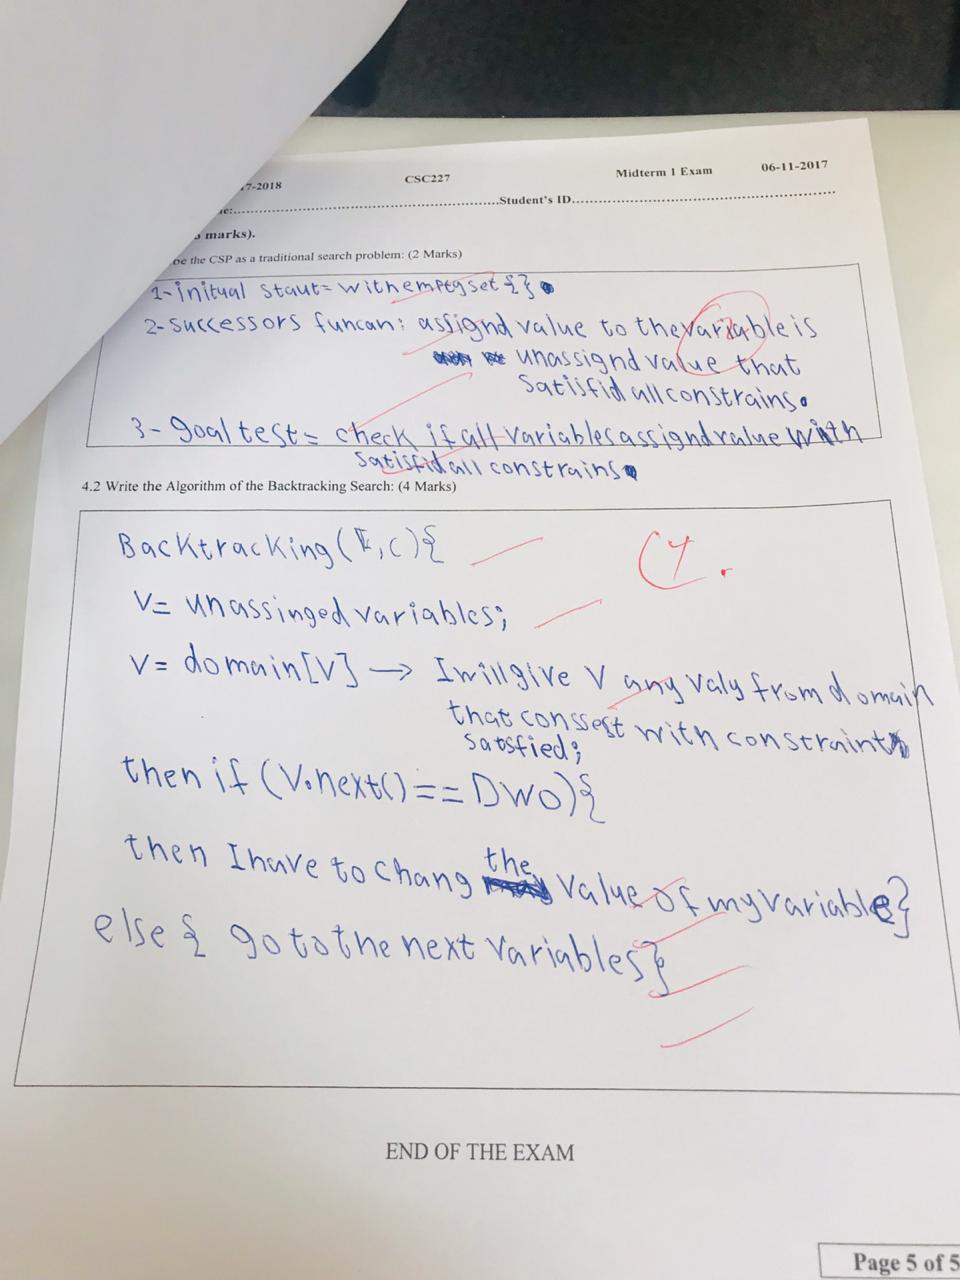 7-2018 CSC227 Midterm 1 Exam 06-11-2017
.....Student's ID.....
marks).
be the CSP as a traditional search problem: (2 Marks)
1- initual staut = with empty set {}.
2- successors funcan: assignd value to the variable is
unassignd value that
satisfid all constrains.
3- goal test = check if all variables assignd value with
satisfid all constrains
4.2 Write the Algorithm of the Backtracking Search: (4 Marks)
Backtracking ( , C){
4.
V= unassinged variables;
V= domain[V] → I will give V any valy from domain
that conssest with constraint
satsfied;
then if (V.next() == DWO){
then I have to chang the value of my variable}
else { go to the next variables}
END OF THE EXAM
Page 5 of 5